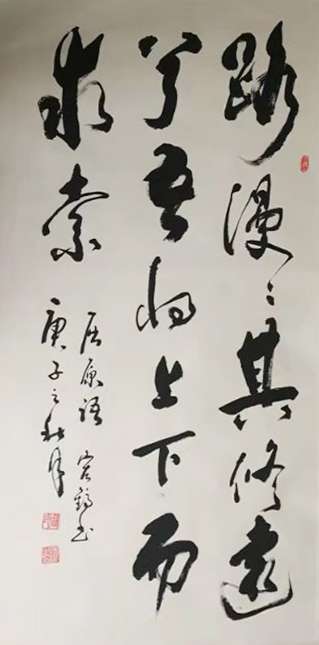 路漫々其修遠
兮吾将上下而
求索
屈原语 书
庚子之秋月